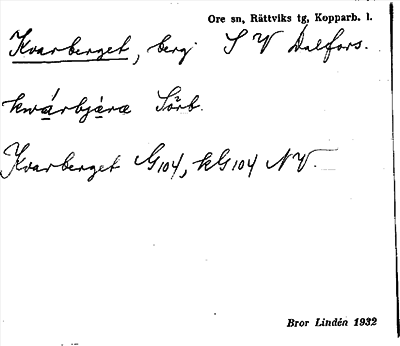 Ore sn, Rättviks tg, Kopparb. l.
Kvarberget, berg S V Dalfors.
kwárbjäræ Sörb.
Kvarberget G104, kG104 NV.
Bror Lindén 1932